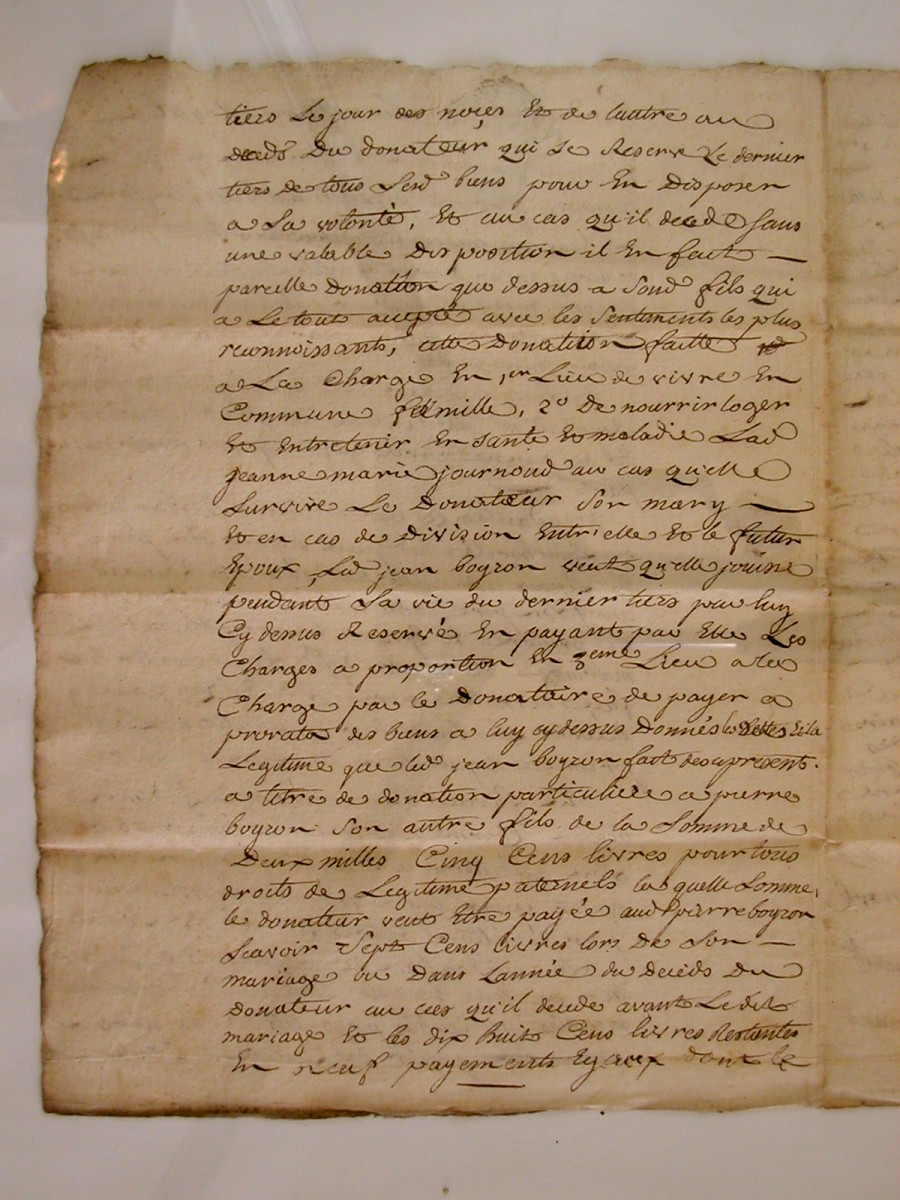 tiers Le jour des noces Et de lautre au
deceds Du donateur qui se Reserve Le dernier
tiers de tous Sesd biens pour En Disposer
a Sa volonté, Et au cas qu'il decede sans
une valable Disposition il En fait
pareille Donation que dessus a Sond fils qui
a Le tout accepté avec les Sentiments les plus
reconnoissants, cette Donation faitte
a La Charge En 1er Lieu de vivre En
Commune famille, 2o De nourrir loger
Et Entretenir En santé Et maladie Lad
jeanne marie journoud au cas qu'elle
Survive Le Donateur Son mary
Et en cas de Division Entr'elle Et le futur
Epoux Led jean boyron veut qu'elle jouisse
pendant Sa vie du dernier tiers par luy
Cy dessus Reservé En payant par Elle Les
Charges a proportion En 3eme Lieu a la
Charge par le Donataire de payer a
prorata des biens a luy cy dessus Donnés les dettes Et la
Legitime que led jean boyron fait des a present
a titre de donation particuliere a pierre
boyron son autre fils de la Somme de
Deux milles Cinq Cens livres pour tous
droits de Legitime paternels la quelle Somme
le donateur veut Etre payée aud pierre boyron
Scavoir Sept Cens livres lors De Son
mariage ou Dans Lannée du Deceds Du
Donateur au cas qu'il decede avant Ledit
mariage Et les dix huit Cens livres Restantes
En neuf payements Egaux dont le